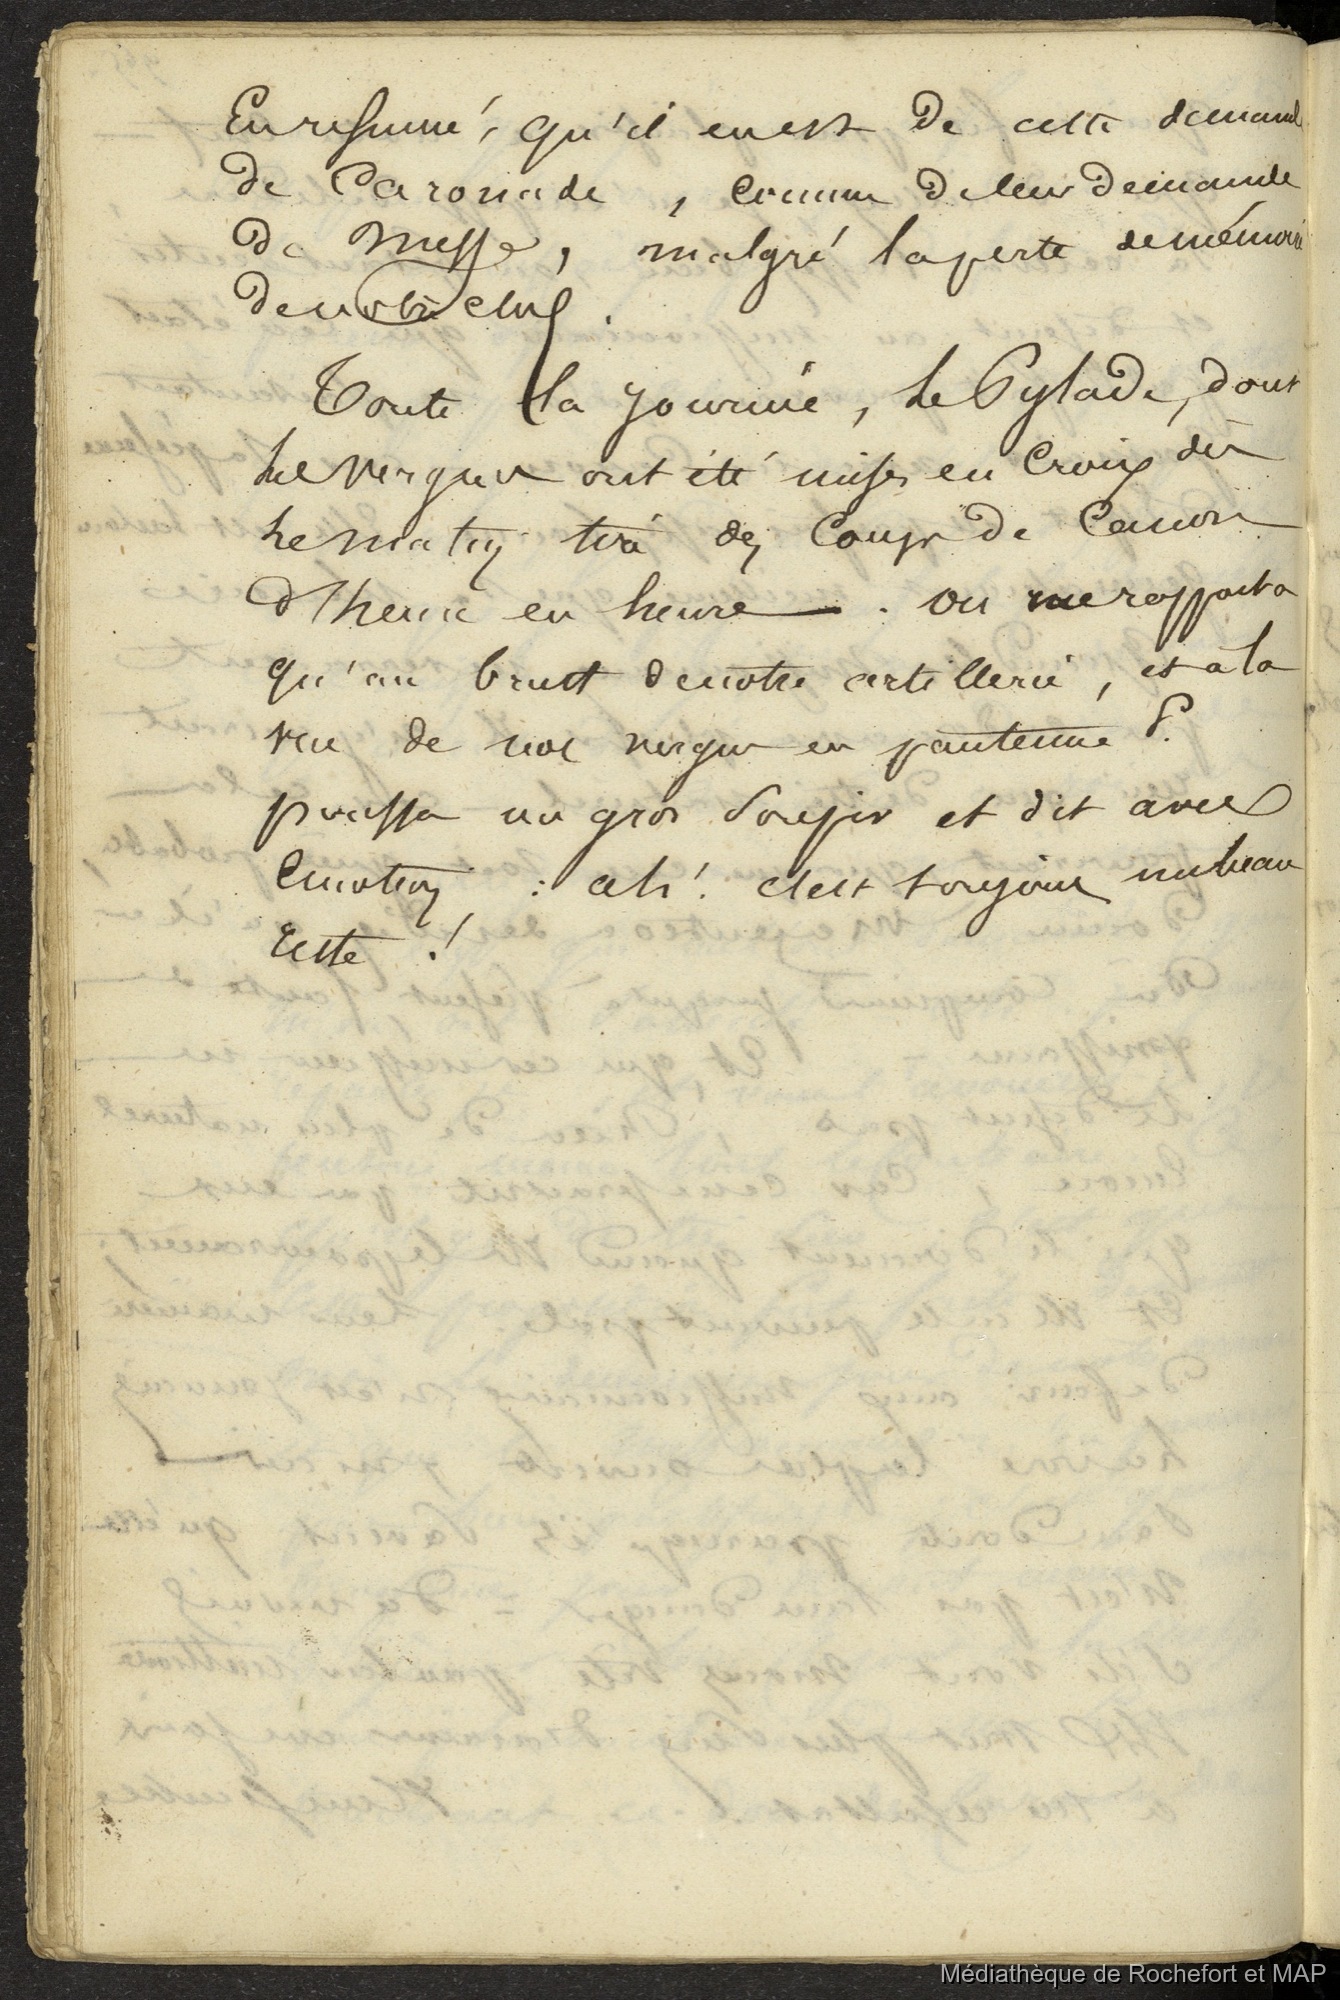 En résumé, qu'il en est de cette demande
de Caronade, comme de leur demande
de messe, malgré la perte de mémoire
de notre chef.
Toute la journée, le Pylade, dont
les vergues ont été mises en Croix dès
le matin tira des Coups de Canon
d'heure en heure. on me rapporta
qu'au bruit de notre artillerie, et à la
vue de nos vergues en pantenne P.
poussa un gros soupir et dit avec
Emotion : ah! c'est toujours un beau
reste !
Médiathèque de Rochefort et MAP